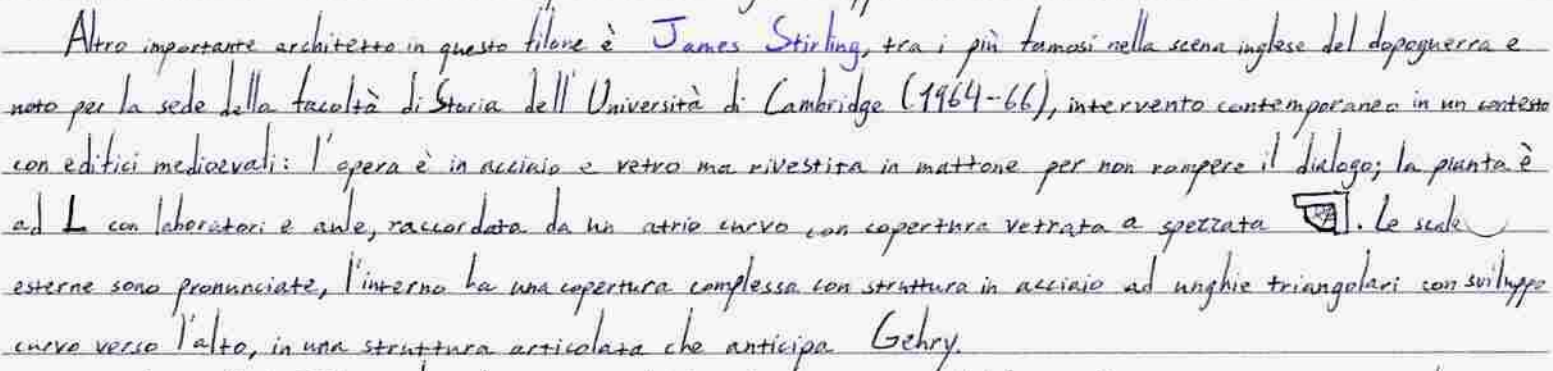 Altro importante architetto in questo filone è James Stirling, tra i più famosi nella scena inglese del dopoguerra e
noto per la sede della facoltà di Storia dell'Università di Cambridge (1964-66), intervento contemporaneo in un contesto
con edifici medioevali: l'opera è in acciaio e vetro ma rivestita in mattone per non rompere il dialogo; la pianta è
ad L con laboratori e aule, raccordata da un atrio curvo con copertura vetrata a spezzata . Le scale
esterne sono pronunciate, l'interno ha una copertura complessa con struttura in acciaio ad unghie triangolari con sviluppo
curvo verso l'alto, in una struttura articolata che anticipa Gehry.